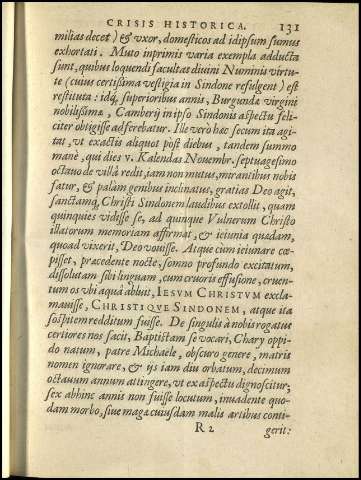 CRISIS HISTORICA. 131
milias decet) & vxor, domesticos ad idipsum sumus
exhortati. Muto inprimis varia exempla adducta
sunt, quibus loquendi facultas divini Numinis virtu-
te (cuius certissima vestigia in Sindone refulgent) est
restituta: idq́ superioribus annis, Burgundæ virgini
nobilissimæ, Camberij in ipso Sindonis aspectu feli-
citer obtigisse adserebatur. Ille verò hæc secum ita agi-
tat, vt exactis aliquot post diebus, tandem summo
manè, qui dies v. Kalendas Novembr. septuagesimo
octauo de villâ redit, iam non mutus, mirantibus nobis
fatur, & palàm genibus inclinatus, gratias Deo agit,
sanctamq́, Christi Sindonem laudibus extollit, quam
quinquies vidisse se, ad quinque Vulnerum Christo
illatorum memoriam affirmat, & ieiunia quædam,
quoad vixerit, Deo vouisse. Atque cùm ieiunare cœ-
pisset, præcedente nocte, somno profundo excitatum,
dissolutam sibi linguam, cum cruoris effusione, cruen-
tum os vbi aquâ abluit, IESVM CHRISTVM excla-
mauisse, CHRISTI QVE SINDONEM, atque ita
sospitem redditum fuisse. De singulis à nobis rogatus
certiores nos facit, Baptistam se vocari, Chary oppi-
do natum, patre Michaële, obscuro genere, matris
nomen ignorare, & ijs iam diu orbatum, decimum
octauum annum attingere, vt ex aspectu dignoscitur,
sex abhinc annis non fuisse locutum, inuadente quo-
dam morbo, siue magæ cuiusdam malis artibus conti-
R 2 gerit: